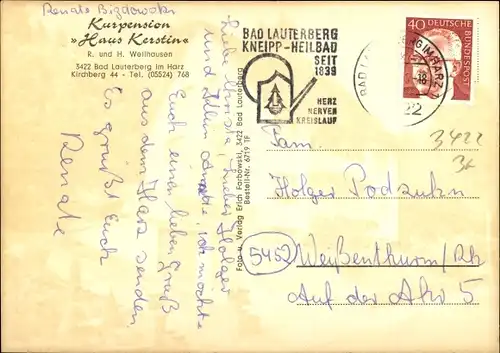 Renate Bigdowski
Kurpension
»Haus Kerstin«
R. und H. Wellhausen
3422 Bad Lauterberg im Harz
Kirchberg 44 - Tel. (05524) 768
Liebe Christa, Lieber Holger
und
ich möchte
Euch einen lieben Gruß
aus dem Harz senden
Es grüßt Euch
Renate
Foto u. Verlag Erich Ferbowski, 3422 Bad Lauterberg
Bestell-Nr. 6719 TF
BAD LAUTERBERG
KNEIPP-HEILBAD
SEIT
1839
HERZ
NERVEN
KREISLAUF
40
DEUTSCHE
BUNDESPOST
3422
Fam.
Holger Podszkn
5452 Weißenthurm/Rh
Auf der Ahr 5